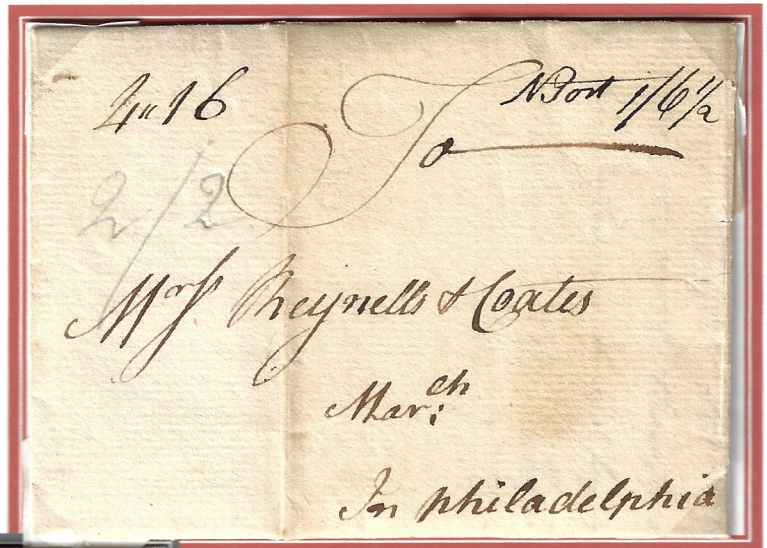 4" 16 N Port 1/6 1/2
To
2/2
Mess.rs Reynells & Coates
Mar:ch
In philadelphia